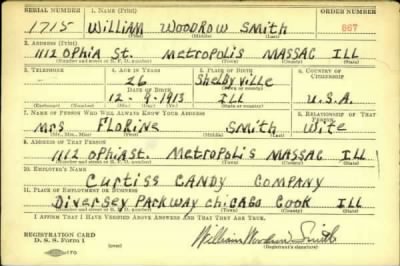 SERIAL NUMBER 1. NAME (Print) ORDER NUMBER
1715 William Woodrow Smith 867
(First) (Middle) (Last)
2. ADDRESS (Print)
1112 Ophia St. Metropolis Massac Ill
(Number and street or R. F. D. number) (Town) (County) (State)
3. TELEPHONE 4. AGE IN YEARS 5. PLACE OF BIRTH 6. COUNTRY OF CITIZENSHIP
26 Shelbyville
DATE OF BIRTH (Town or county)
12-9-1913 Ill U.S.A.
(Exchange) (Number) (Mo.) (Day) (Yr.) (State or country)
7. NAME OF PERSON WHO WILL ALWAYS KNOW YOUR ADDRESS 8. RELATIONSHIP OF THAT PERSON
Mrs Florine Smith Wife
(Mr., Mrs., Miss) (First) (Middle) (Last)
9. ADDRESS OF THAT PERSON
1112 Ophia St. Metropolis Massac Ill
(Number and street or R. F. D. number) (Town) (County) (State)
10. EMPLOYER'S NAME
Curtiss Candy Company
11. PLACE OF EMPLOYMENT OR BUSINESS
Diversey Parkway Chicago Cook Ill
(Number and street or R. F. D. number) (Town) (County) (State)
I AFFIRM THAT I HAVE VERIFIED ABOVE ANSWERS AND THAT THEY ARE TRUE.
REGISTRATION CARD
D. S. S. Form 1 William Woodrow Smith
(Registrant's signature)